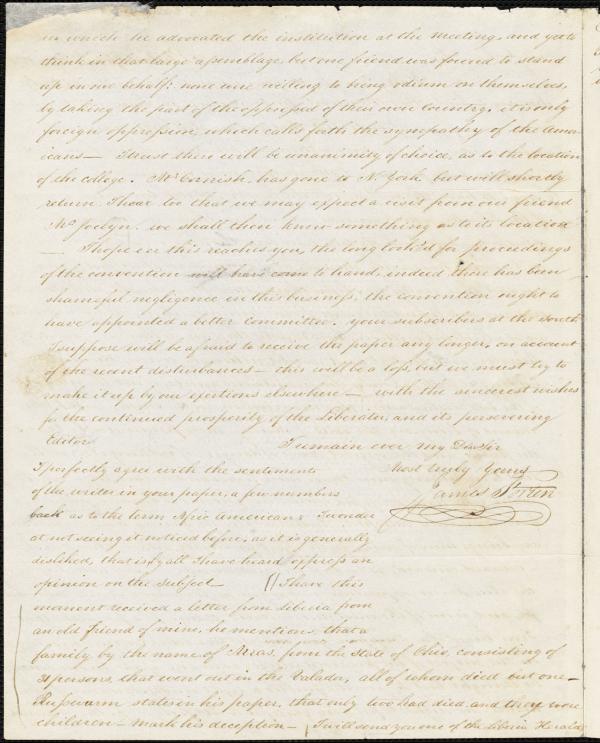 in which he advocated the institution at the meeting, and yet to
think in that large assemblage, but one friend was found to stand
up in our behalf: none were willing to bring odium on themselves,
by taking the part of the oppressed of their own Country, it is only
foreign oppression which calls forth the sympathy of the Amer
icans — I trust there will be unanimity of choice, as to the location
of the college. Mr Cornish, has gone to N. York but will shortly
return I hear too that we may expect a visit from our friend
Mr Jocelyn. we shall then know something as to its location
— I hope ere this reaches you, the long look'd for proceedings
of the convention will have come to hand, indeed there has been
shameful negligence in this business; the convention ought to
have appointed a better committee. your subscribers at the South
I suppose will be afraid to receive the paper any longer, on account
of the recent disturbances — this will be a loss, but we must try to
make it up by our exertions elsewhere — with the sincerest wishes
for the continued prosperity of the Liberator, and its persevering
Editor
I remain ever my Dear Sir
Most truly yours
James Forten
I perfectly agree with the sentiments
of the writer in your paper, a few numbers
back as to the term Afric Americans I wonder
at not seeing it noticed before, as it is generally
disliked, that is by all I have heard express an
opinion on the subject — I have this
moment received a letter from Liberia from
an old friend of mine, he mentions, that a
family by the name of from the State of Ohio, consisting of
persons, that went out in the Valador, all of whom died but one —
Russwurm states in his paper, that only two had died, and they were
children — mark his deception — I will send you one of the Liberia Herald